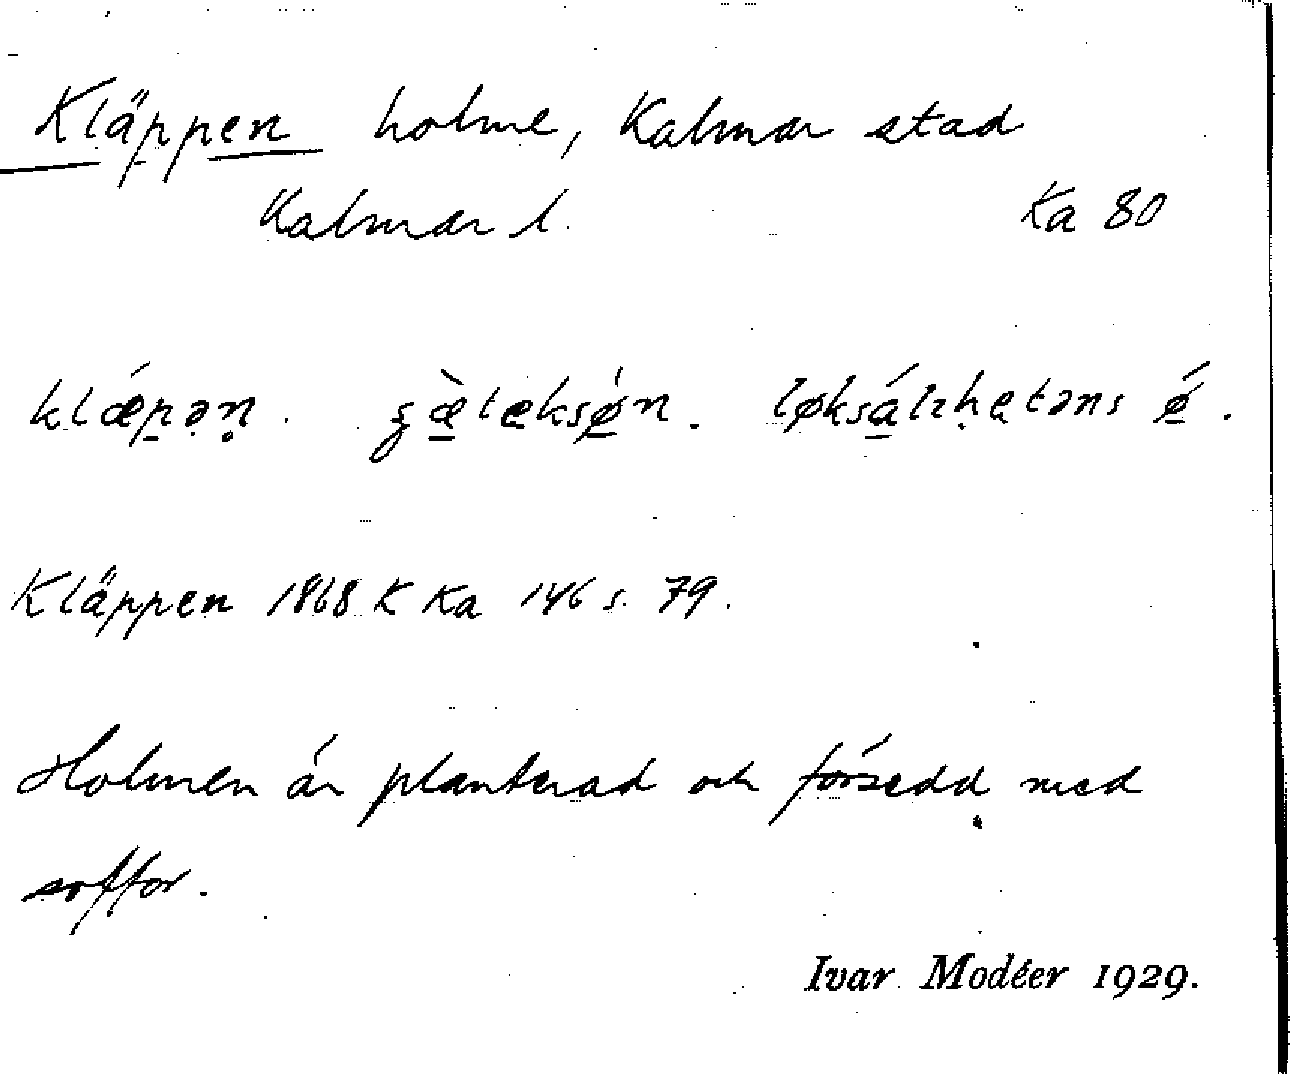 Kläppen holme, Kalmar stad
Kalmar l. Ka 80
klǽpən.
Kläppen 1868 K Ka 146 s. 79.
Holmen är planterad och försedd med
soffor.
Ivar Modéer 1929.